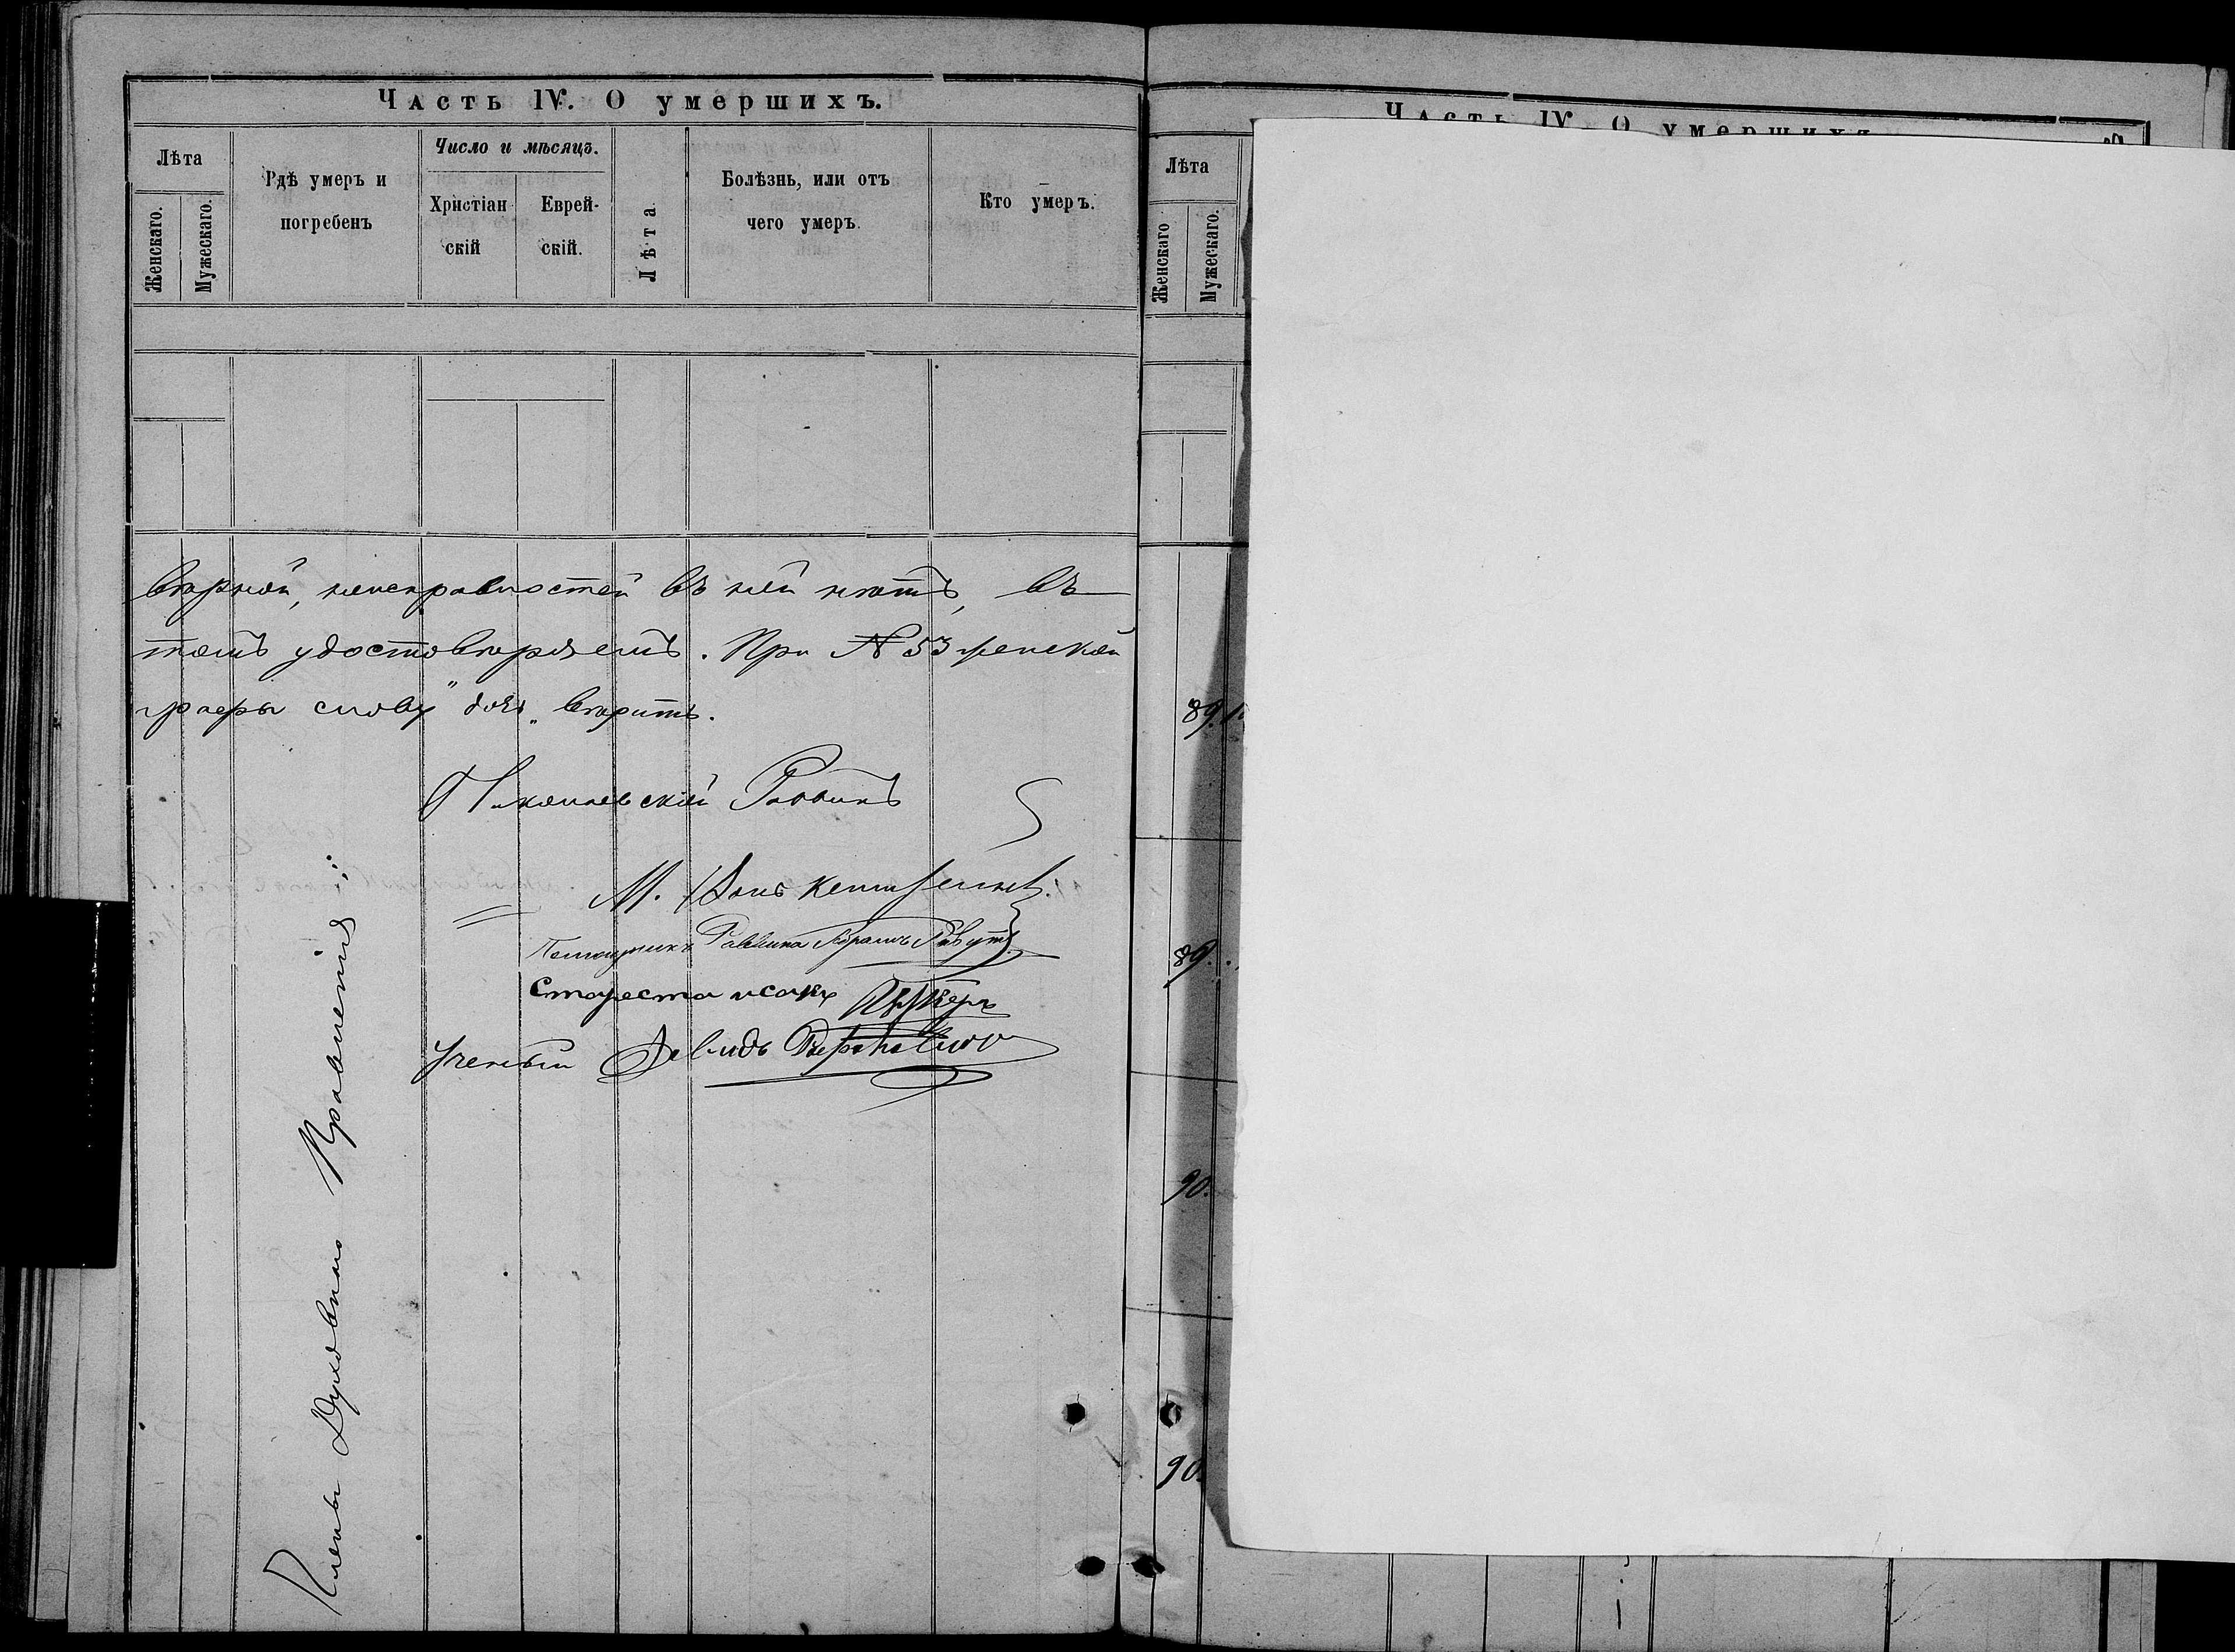 Часть IV. О умершихъ.
Лѣта
Женскаго.
Мужескаго.
Гдѣ умеръ и
погребенъ
Число и мѣсяцъ.
Христіан
скій
Еврей-
скій.
Лѣта
Болѣзнь, или отъ
чего умеръ.
Кто умеръ.
вѣрной, неисправностей въ ней нѣтъ, въ
томъ удостовѣряемъ. При № 53 женской
графы слову вѣрить.
Николаевскій Раввинъ
М.
Помощникъ Раввина Абрамъ
Староста
Ученый Давидъ
Члены Духовнаго Правленія:
Часть IV. О умершихъ
Лѣта
Женскаго
Мужескаго.
89.
89.
90.
90.